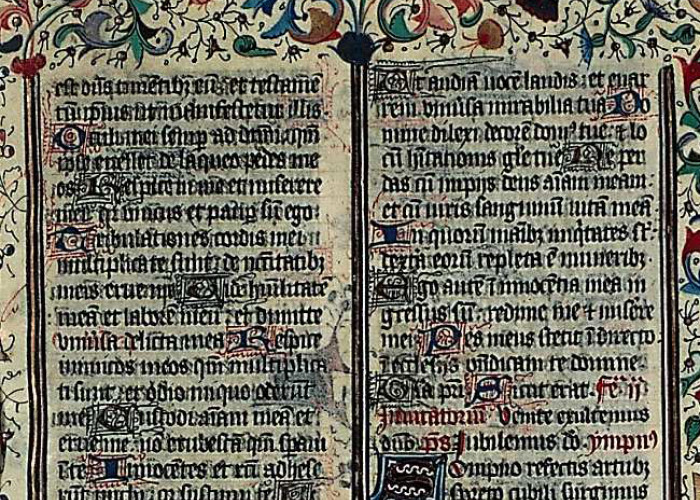 est dñs timentibz eũ: et testame
tum ipius ut manifestetur illis.
Oculi mei semp ad dñm: qm̃
ipse euellet de laqueo pedes me
os Respice in me et miserere
mei: qr vnicus et paup sũ ego:
Tribulationes cordis mei
multiplicate sunt: de nc̃citatibz
meis erue me Vide hũilitatẽ
meã et laborẽ meũ: et dimitte
vniũsa delicta mea Respice
inimicos meos qm̃ multiplica
ti sunt: et odio iniquo oderũt
me Custodi aĩam meã et
erue me: nõ erubescã qm̃ spaui
ĩ te Innocẽtes et rcĩ adhese
rũt michi: qr sustinui te
Vt audiã uocẽ laudis: et enar
rem vniũsa mirabilia tua Do
mine dilexi decorẽ domˀ tue: et lo
cũ hĩtationis glẽ tuẽ Ne per
das cũ impijs deus aĩam meam:
et cũ uiris sanguinũ uitã meã
In quorũ maĩbz iniq̃tates sũt
dextra eorũ repleta ẽ muneribz.
Ego autẽ ĩ innocẽtia mea in
gressus sũ: redime me et misere
mei Pes meus stetit ĩ directo
ĩ ecclesijs bñdicam te domine.
Glã pr̃i Sicut erat. Fẽ ij
Inuitatoriũ Venite exultemus
dño. ps Iubilemus dõ. ympnˀ
Sompno refectis artubz
spreto cubili surgimus